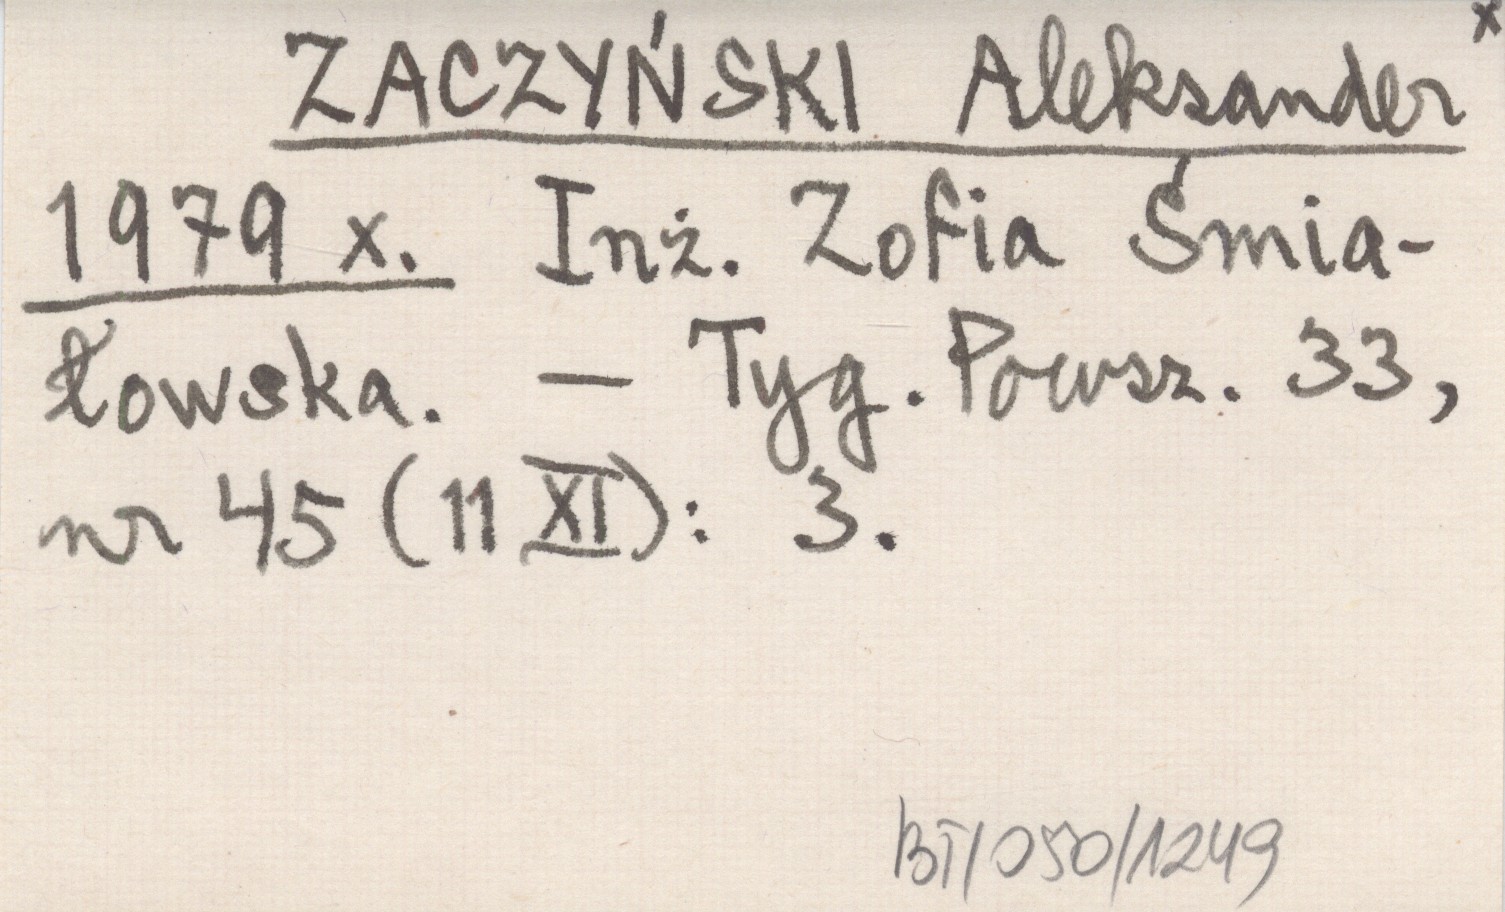 x
ZACZYŃSKI Aleksander
1979 x. Inż. Zofia Śmia-
łowska. — Tyg. Powsz. 33,
nr 45 (11 XI): 3.
BT/050/1249